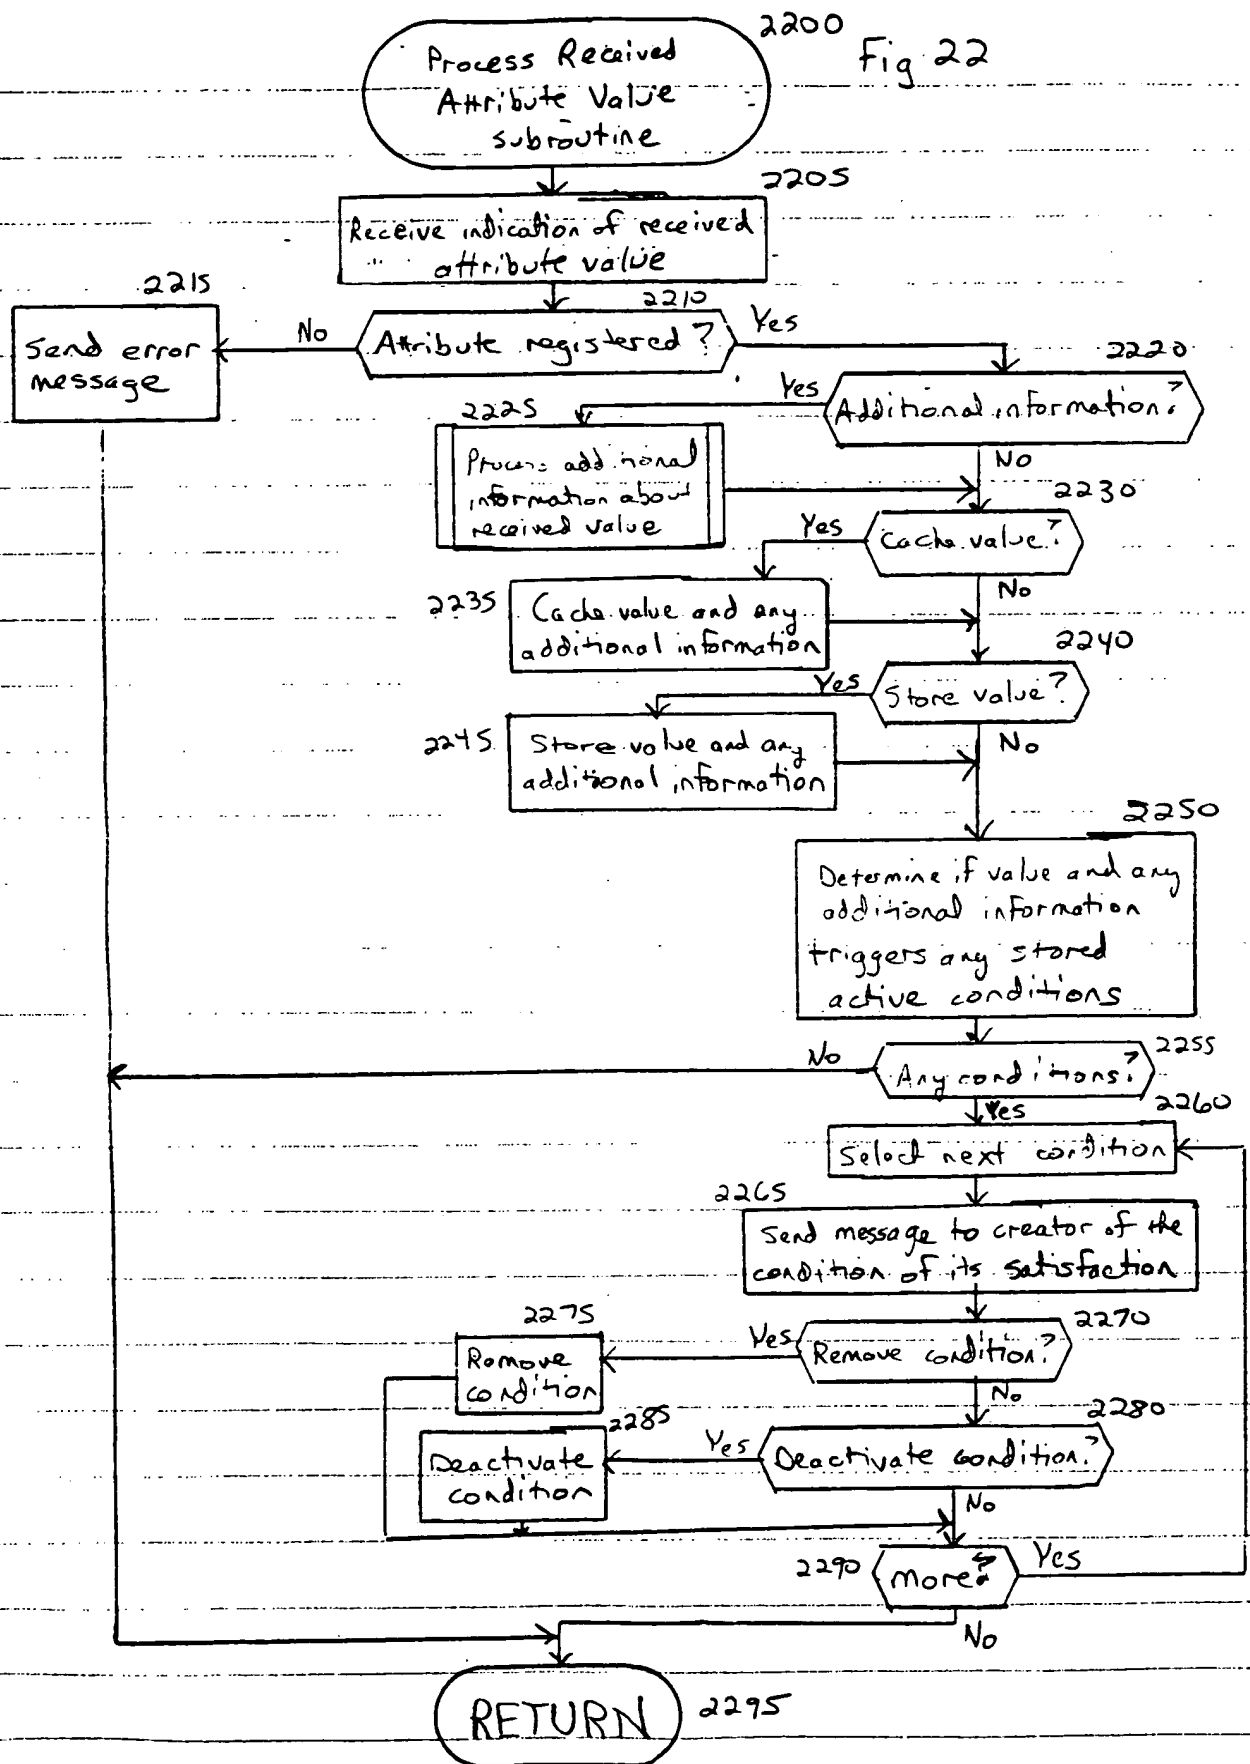 2200
Fig 22
Process Received
Attribute Value
subroutine
2205
Receive indication of received
attribute value
2210
Attribute registered?
No
Yes
2215
Send error
message
2220
Additional information?
Yes
No
2225
Process additional
information about
received value
2230
Cache value?
Yes
No
2235
Cache value and any
additional information
2240
Store value?
Yes
No
2245
Store value and any
additional information
2250
Determine if value and any
additional information
triggers any stored
active conditions
2255
Any conditions?
No
Yes
2260
Select next condition
2265
Send message to creator of the
condition of its satisfaction
2270
Remove condition?
Yes
No
2275
Remove
condition
2280
Deactivate condition?
Yes
No
2285
Deactivate
condition
2290
More?
Yes
No
RETURN
2295